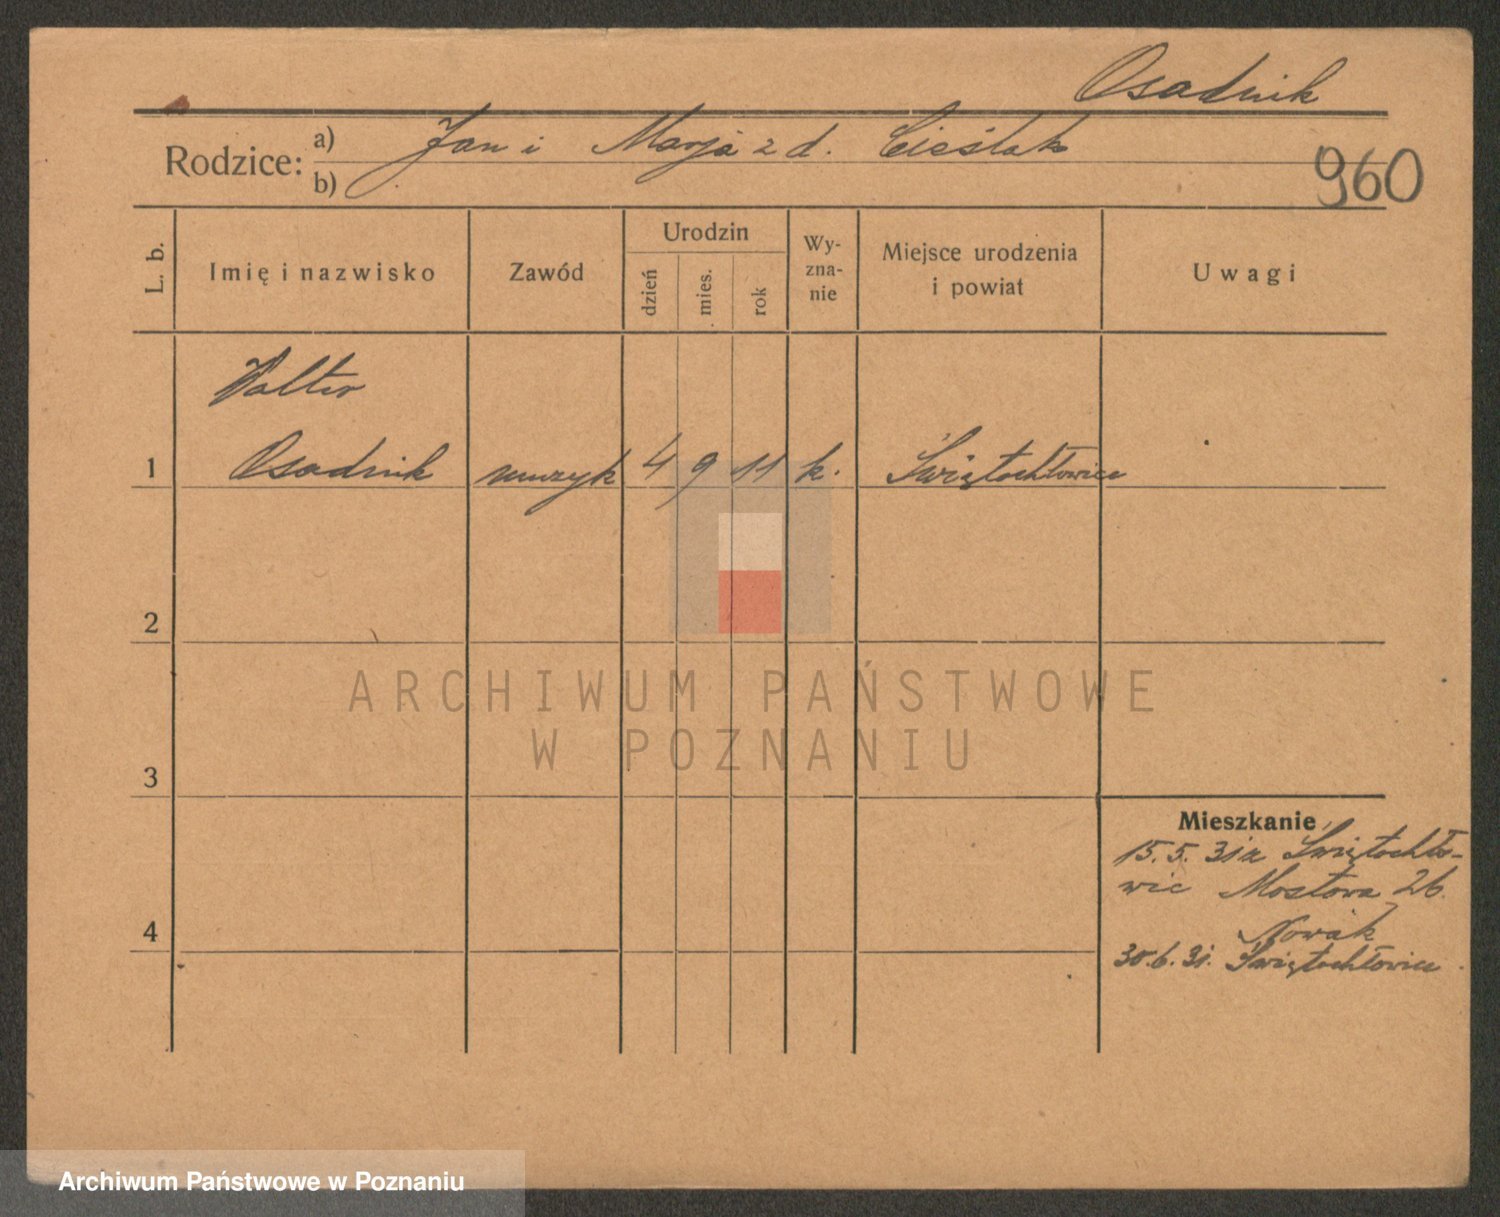 Osadnik
Rodzice: a) Jan i Marja z d. Cieślak
b)
960
L. b.
Imię i nazwisko
Zawód
Urodzin
dzień
mies.
rok
Wy-
zna-
nie
Miejsce urodzenia
i powiat
Uwagi
Walter
1 Osadnik muzyk 4 9 11 k. Świętochłowice
2
3
4
Mieszkanie
15. 5. 31 z Świętochło-
wic Mostowa 26.
Nowak
30. 6. 31. Świętochłowice
ARCHIWUM PAŃSTWOWE
W POZNANIU
Archiwum Państwowe w Poznaniu